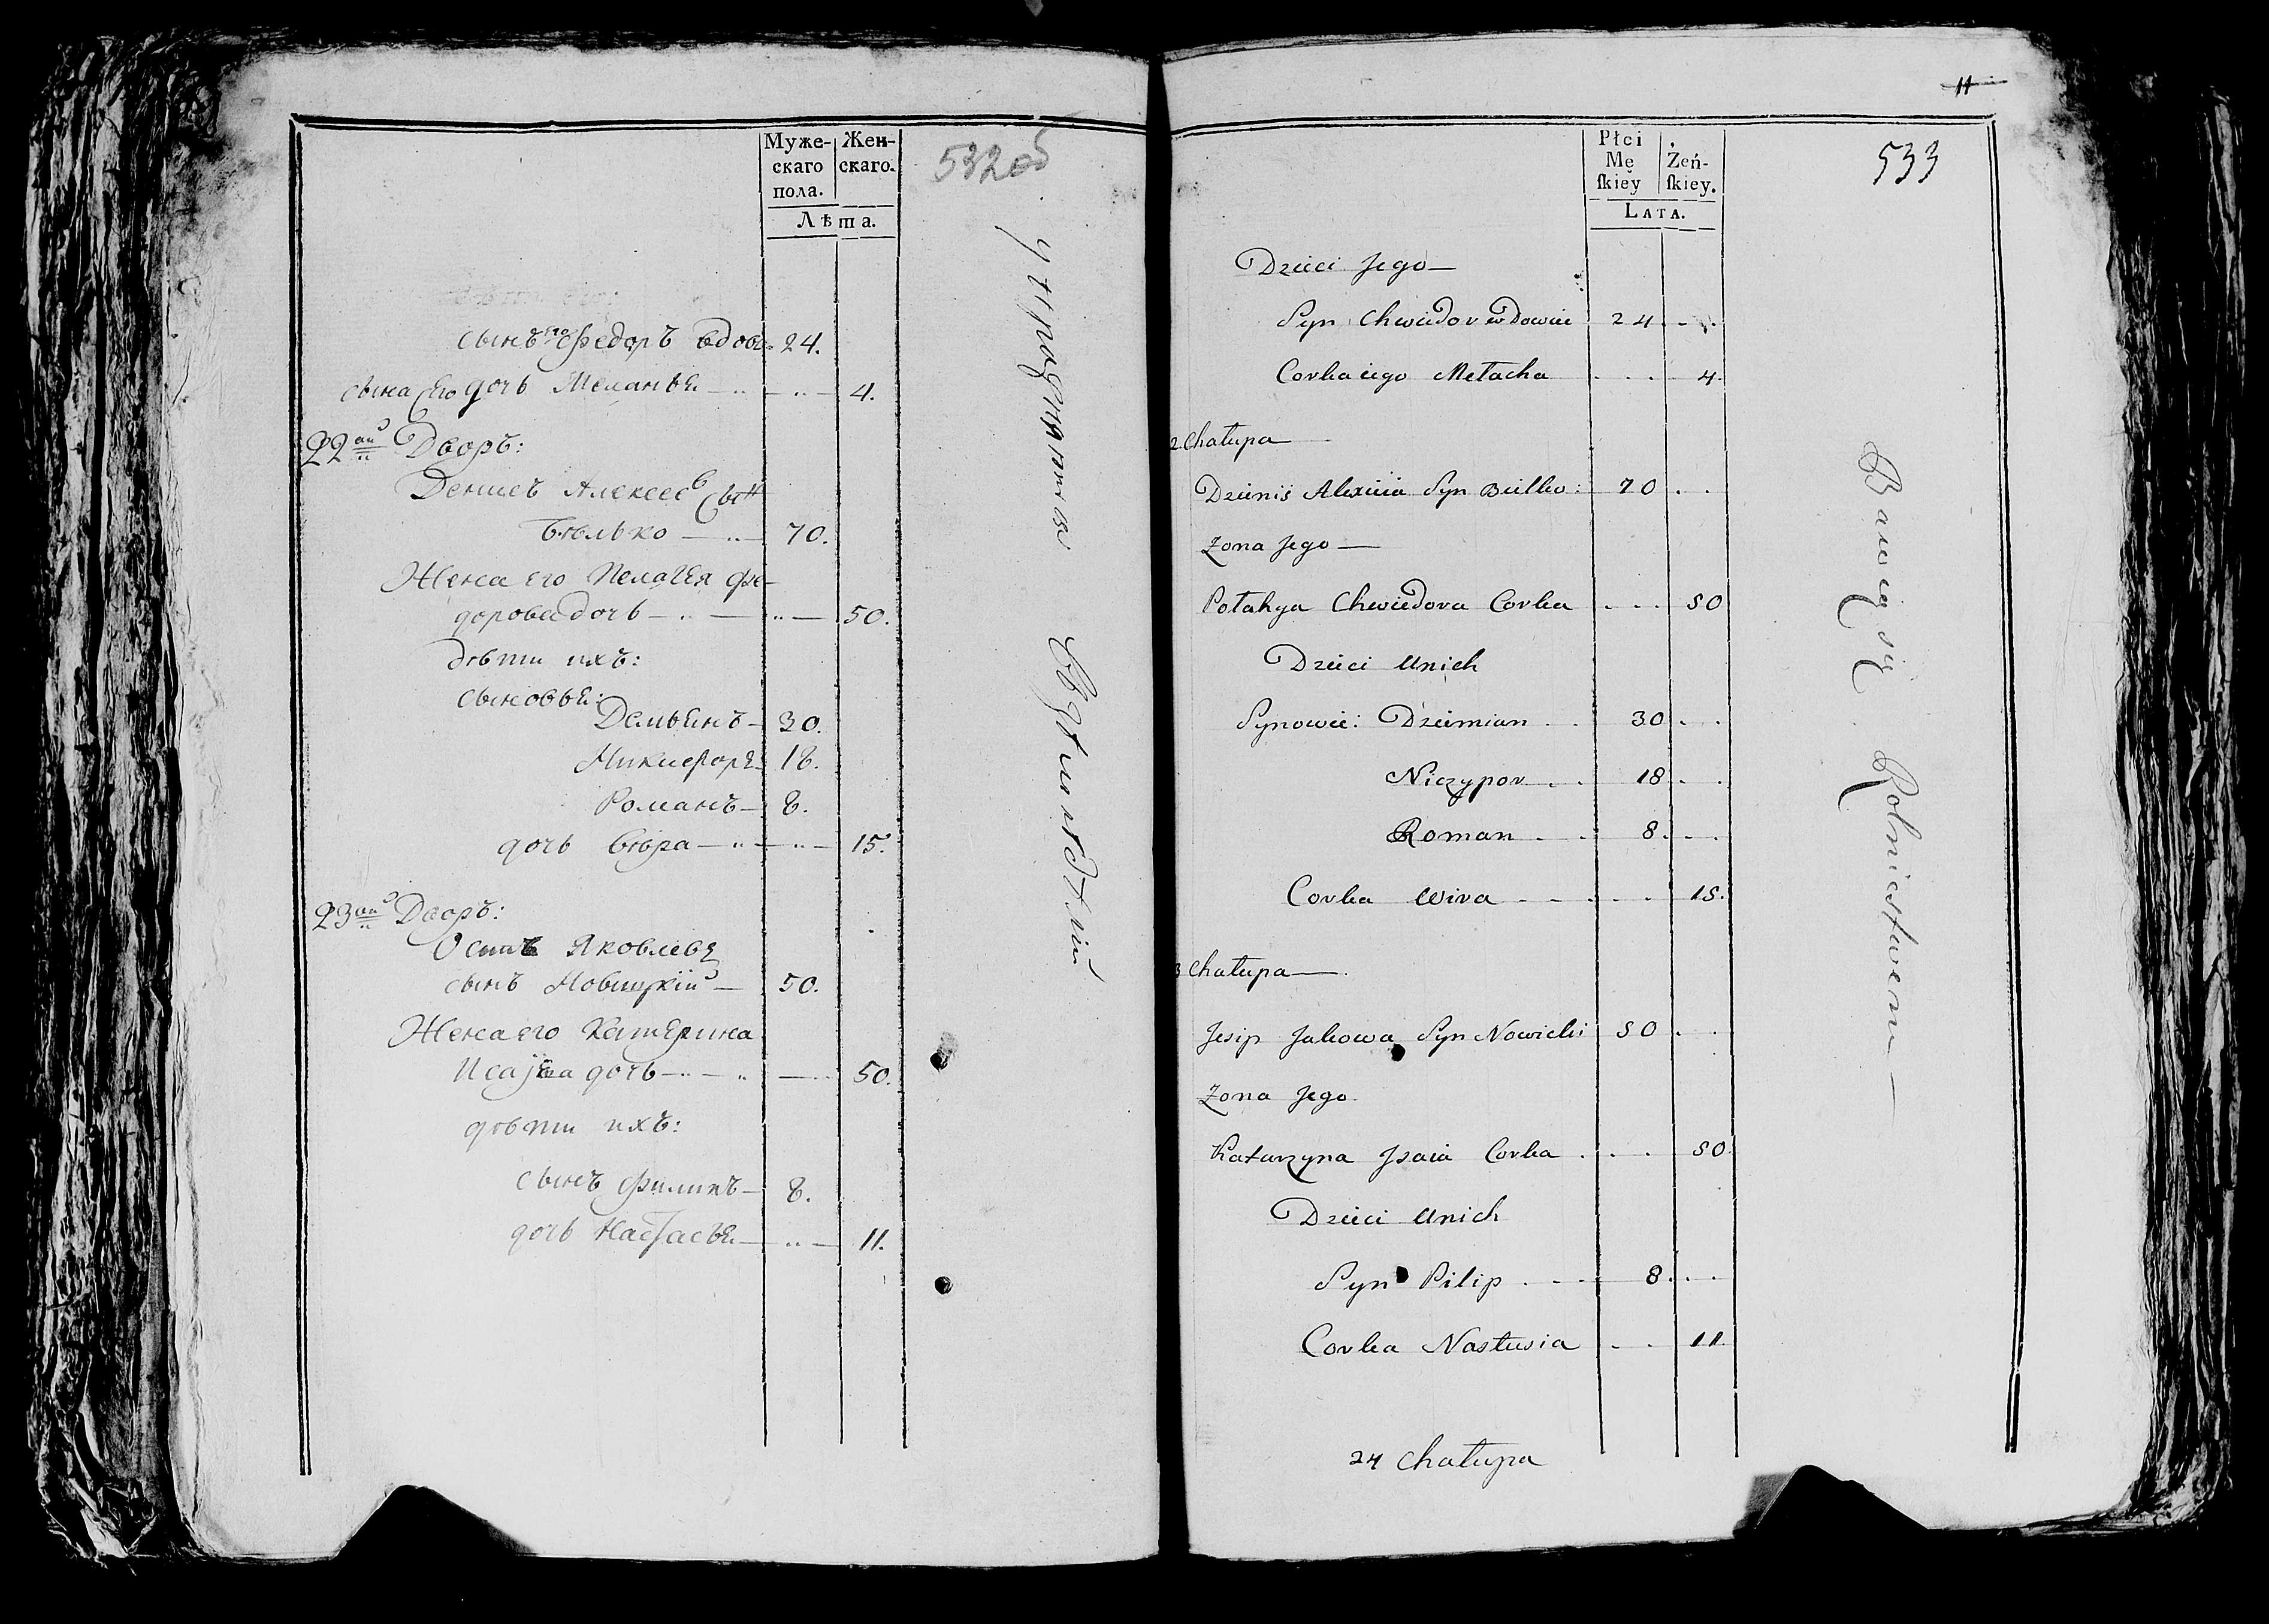 Муже-
скаго
пола.
Жен-
скаго.
Лѣта.
532 об
сынъ его Федоръ вдовъ 24.
сына Его дочь Меланья — 4.
22ой Дворъ:
Денисъ Алексеевъ сын
Бѣлько — 70.
Жена его Пелагея Фе-
дорова дочь — 50.
дѣти ихъ:
сыновья:
Демьянъ — 30.
Никифоръ 18.
Романъ — 8.
дочь Вѣра — 15.
23ий Дворъ:
Осипъ Яковлевъ
сынъ Новицкій — 50.
Жена его Катерина
Исаева дочь — 50.
дѣти ихъ:
сынъ Филипъ — 8.
дочь Настасья — 11.
11
533
Płci
Mę
ſkiey
Żeń-
ſkiey.
Lata.
Dzieci Jego —
Syn Chwiedor wdowiec 24
Corka iego Mełacha 4
2 Chałupa
Dzienis Alexieia Syn Bielko: 70
Zona Jego —
Połahya Chwiedora Corka 50
Dzieci Unich
Synowie: Dziemian 30
Niczypor 18
Roman 8
Corka Wiera 15.
3 Chałupa —
Jesip Jakowa Syn Nowicki 50
Zona Jego
Katarzyna Jsaia Corka 50
Dzieci Unich
Syn Pilip 8
Corka Nastusia 11
24 Chałupa
Bawią się Rolnictwem —